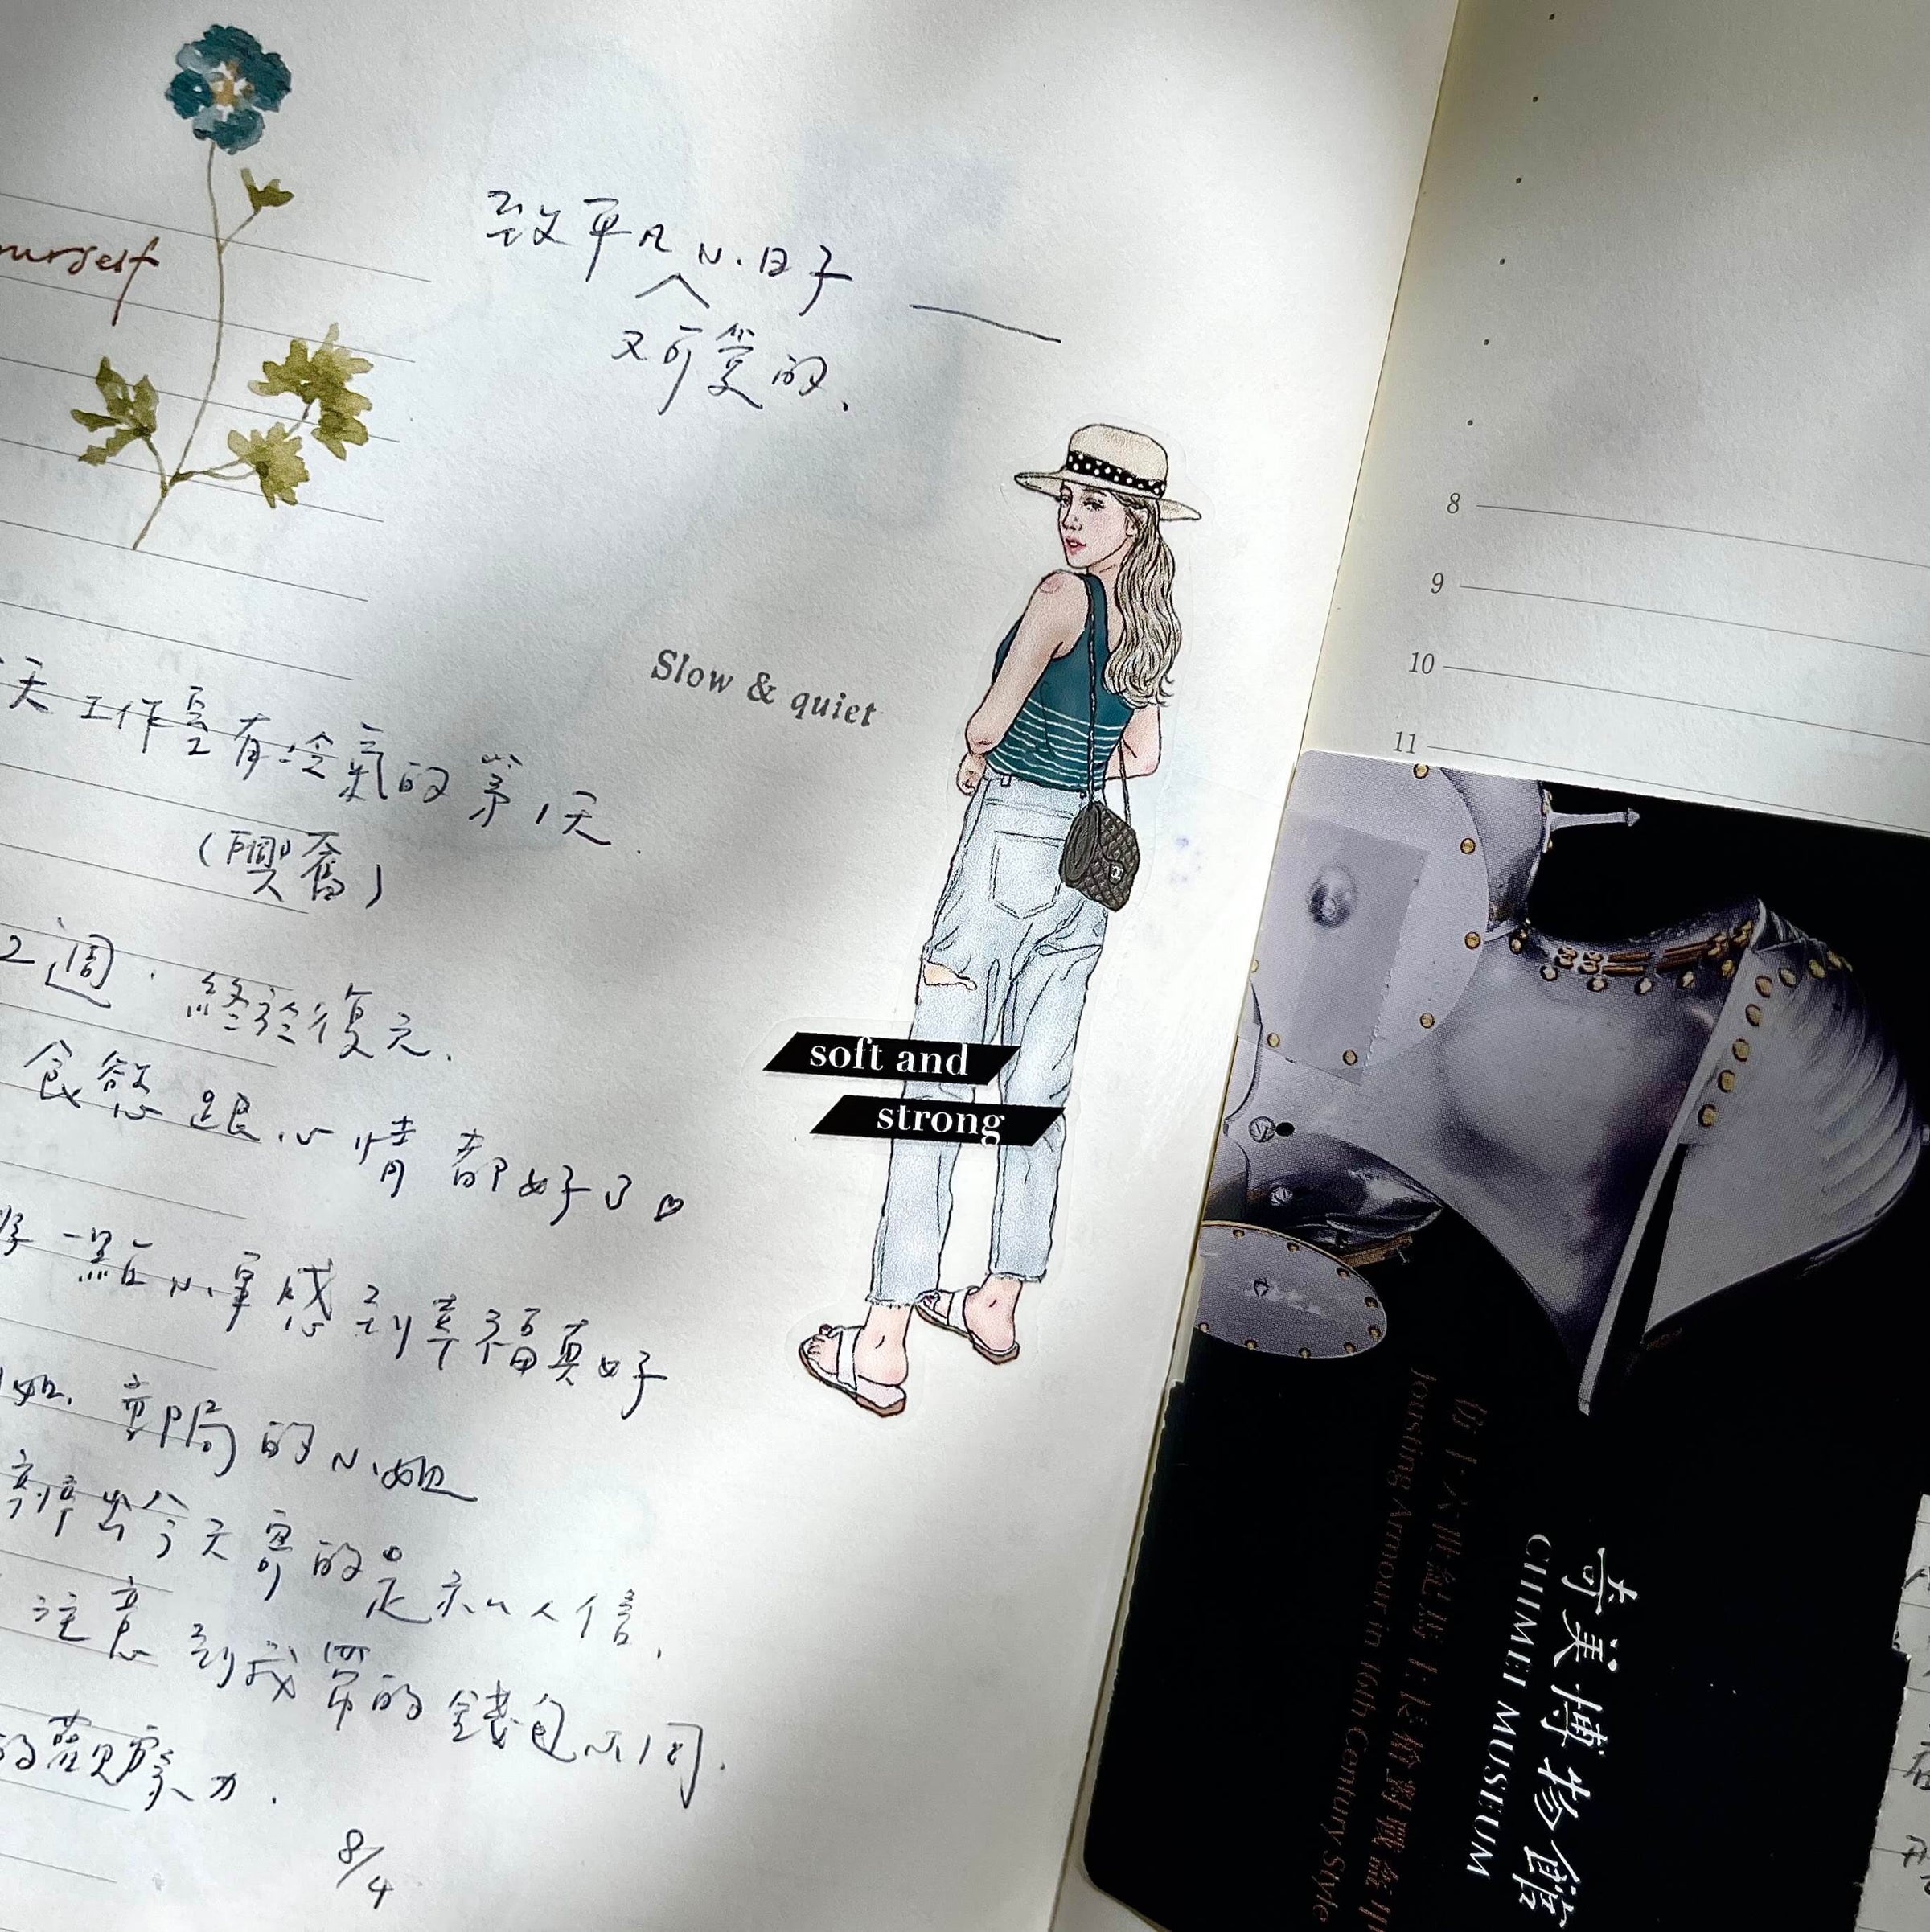 致平凡小日子 ——
又可愛的、
urself
Slow & quiet
天工作室有冷氣的第1天.
(興奮)
2週．終於復元.
食慾跟心情都好了♡
一點小事感到幸福真好
郵局的小姐
辨出今天寄的是私人信、
注意到我買的錢包不同.
的觀察力.
8/4
soft and
strong
8
9
10
11
仿十六世紀馬上長槍對戰盔甲
Jousting Armour in 16th Century Style
奇美博物館
CHIMEI MUSEUM